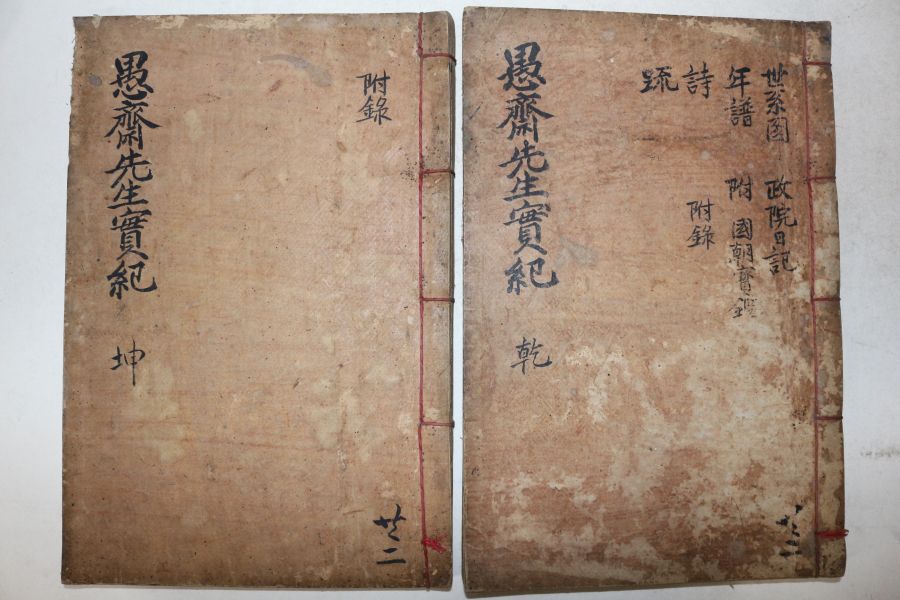 世系圖 政院日記
年譜 附 國朝寶鑑
詩 附錄
疏
愚齋先生實紀 乾
共二
附錄
愚齋先生實紀 坤
共二